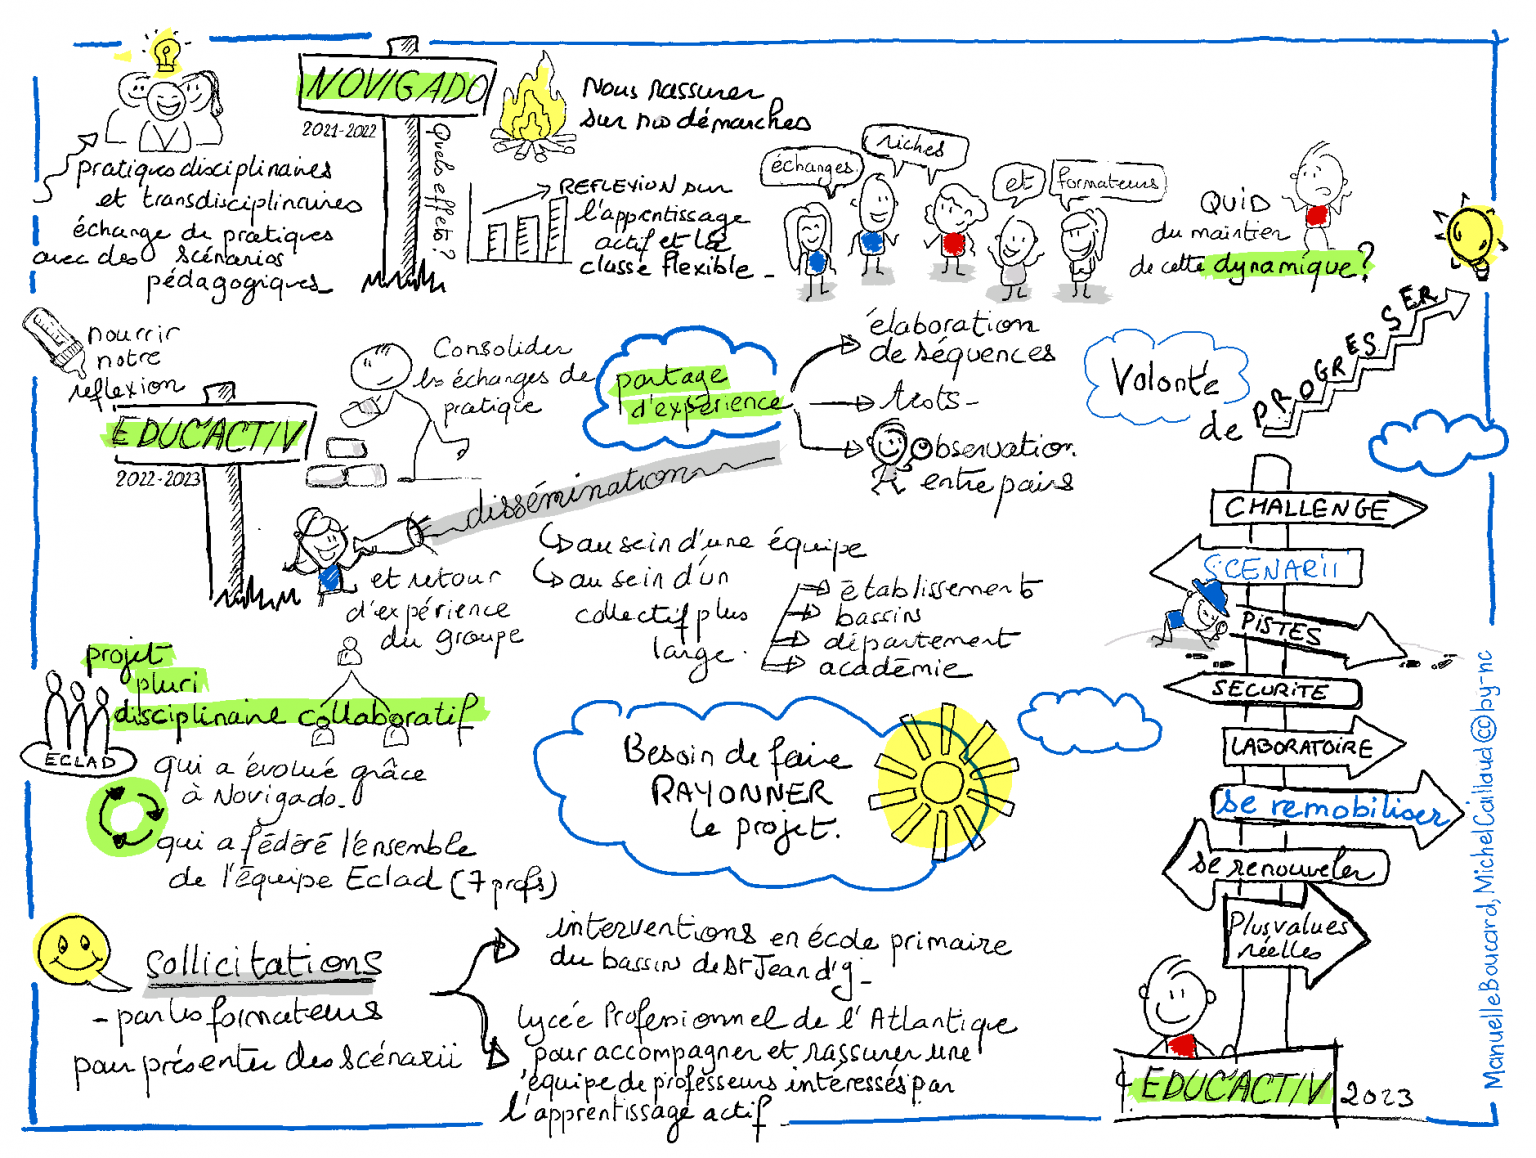 NOVIGADO
2021-2022
Quels effets ?
pratiques disciplinaires
et transdisciplinaires
échange de pratiques
avec des scénarios
pédagogiques
Nous rassurer
sur nos démarches
REFLEXION sur
l'apprentissage
actif et la
classe flexible
échanges
riches
et
formateurs
QUID
du maintien
de cette dynamique ?
nourrir
notre
réflexion
EDUC'ACTIV
2022-2023
Consolider
les échanges de
pratique
partage
d'expérience
élaboration
de séquences
tests
Observation
entre pairs
Volonté
de PROGRESSER
dissémination
et retour
d'expérience
du groupe
au sein d'une équipe
au sein d'un
collectif plus
large.
établissements
bassins
département
académie
projet
pluri
disciplinaire collaboratif
ECLAD
qui a évolué grâce
à Novigado.
qui a fédéré l'ensemble
de l'équipe Eclad (7 profs)
Besoin de faire
RAYONNER
le projet.
sollicitations
- par les formateurs
pour présenter des scénarii
interventions en école primaire
du bassin de St Jean d'y
Lycée Professionnel de l'Atlantique
pour accompagner et rassurer une
équipe de professeurs intéressés par
l'apprentissage actif
CHALLENGE
SCENARII
PISTES
SECURITE
LABORATOIRE
se remobiliser
se renouveler
Plus values
réelles
EDUC'ACTIV
2023
Manuelle Boucard, Michel Caillaud cc by-nc